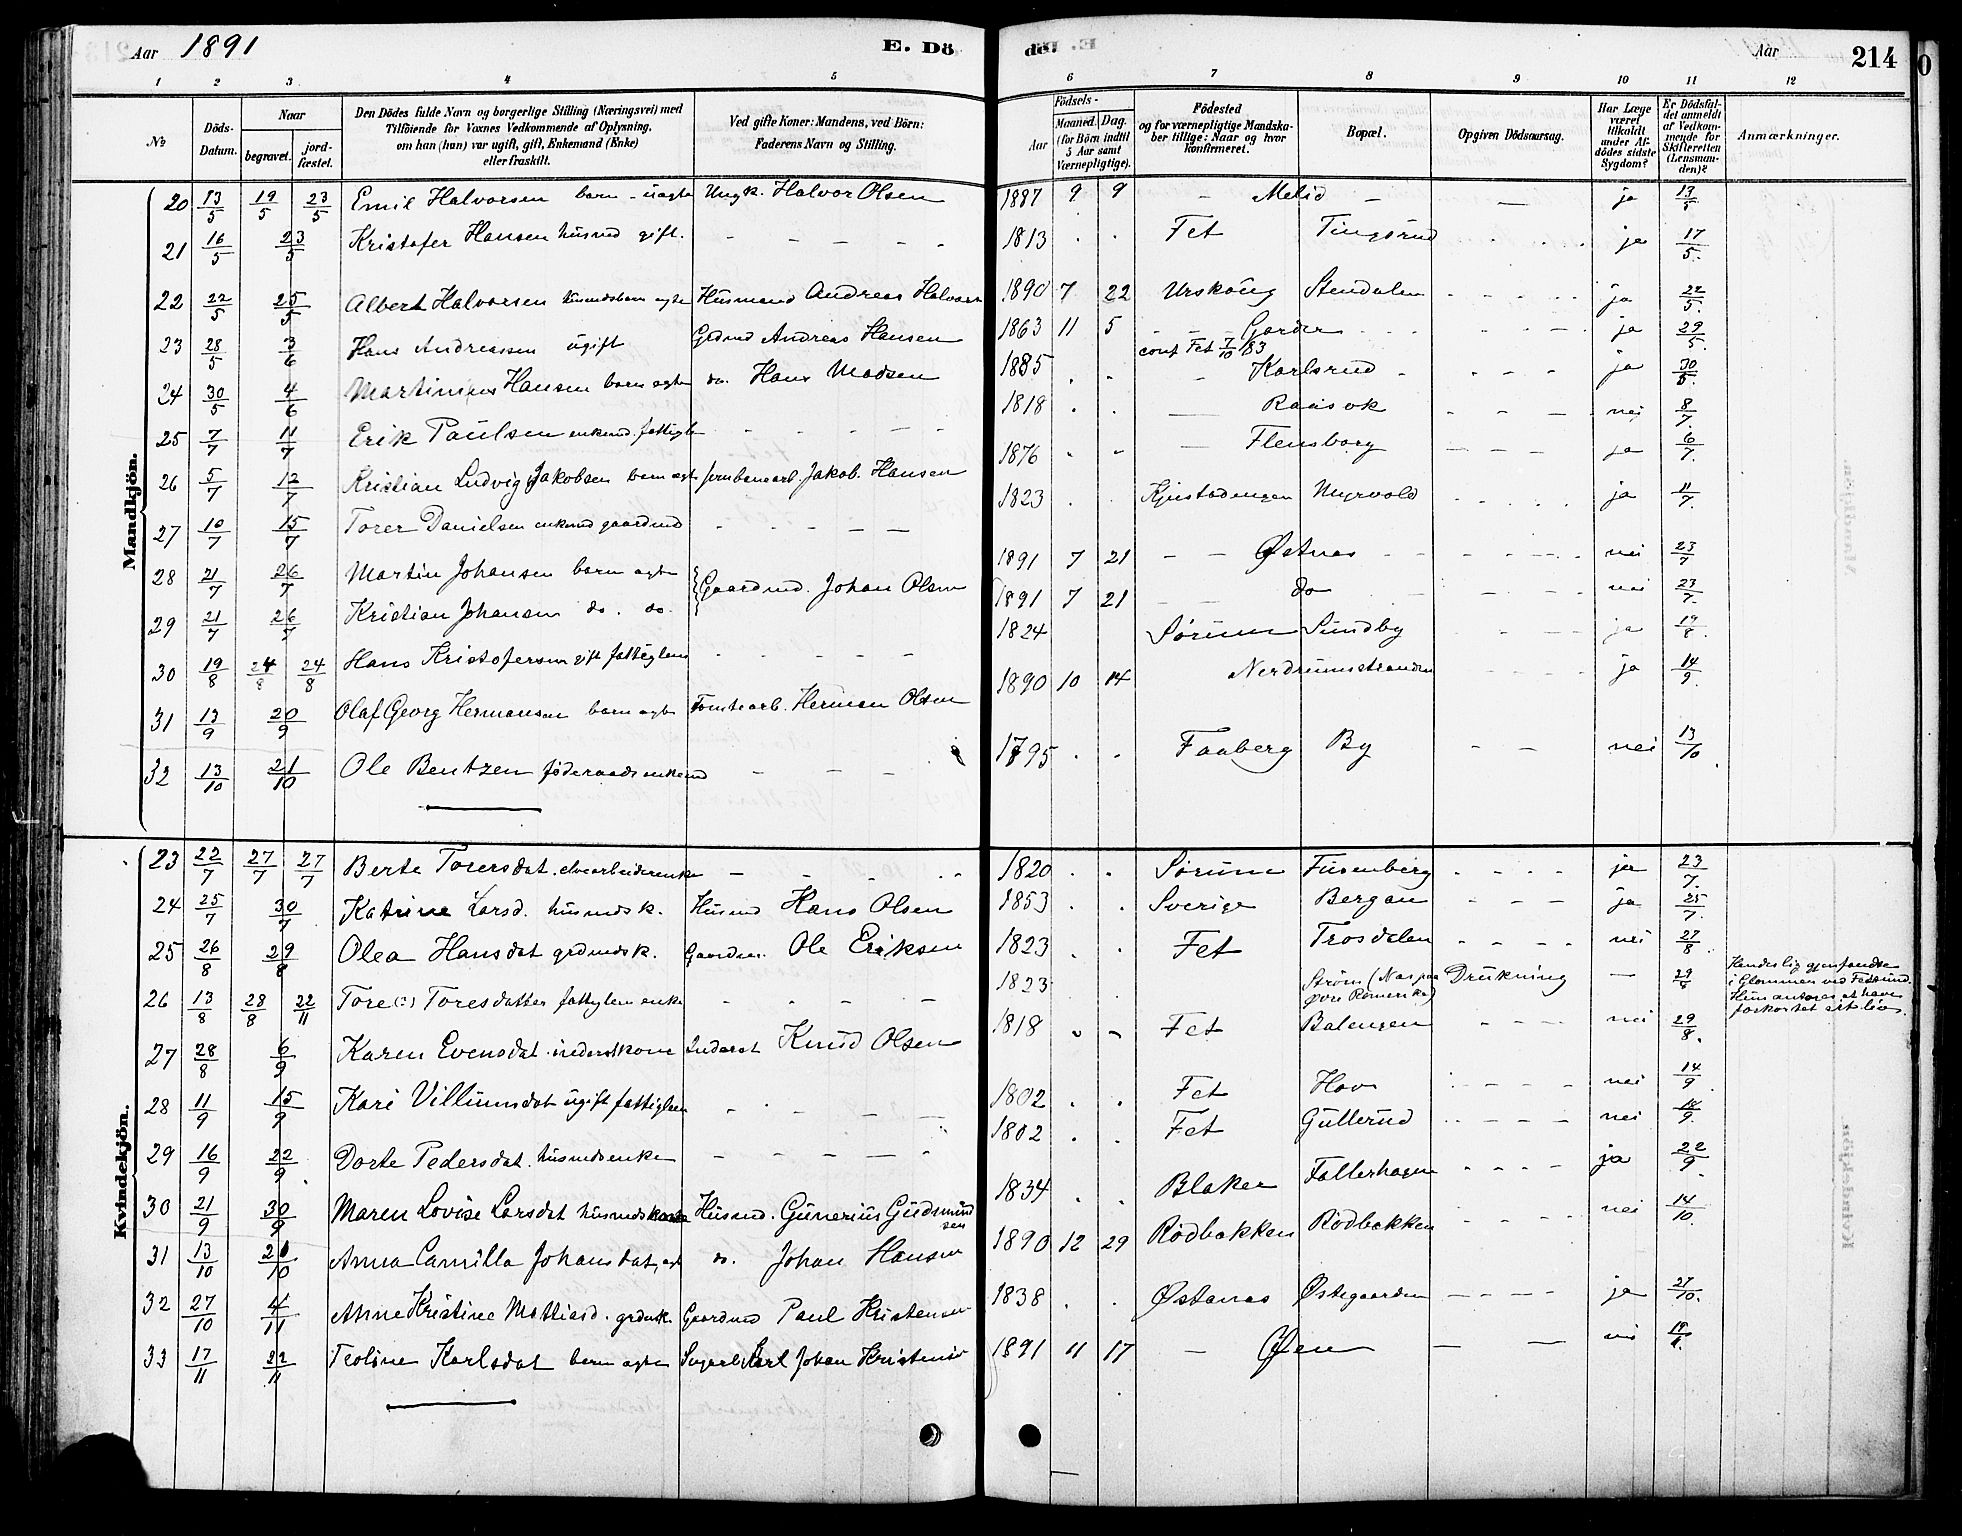 Aar 1891 E. Dö
döl. Aar 214
1 2 3 4 5 6 7 8 9 10 11 12
No
Döds-Datum.
Naar
begravet.
jord-fæstet.
Den Dödes fulde Navn og borgerlige Stilling (Næringsvei) med
Tilföiende for Voxnes Vedkommende af Oplysning,
om han (hun) var ugift, gift, Enkemand (Enke)
eller fraskilt.
Ved gifte Koner: Mandens, ved Börn:
Faderens Navn og Stilling.
Födsels-
Aar
Maaned. Dag.
(for Börn indtil 5 Aar samt Værnepligtige).
Födested
og for værnepligtige Mandska-
ber tillige: Naar og hvor
konfirmeret.
Bopæl.
Opgiven Dödsaarsag.
Har Læge været tilkaldt under Af-dödes sidste Sygdom?
Er Dödsfal-det anmeldt af Vedkom-mende for Skifteretten (Lensman-den)?
Anmærkninger.
Mandkjön.
20 13/5 19/5 23/5 Emil Halvorsen barn - uægte Ungk. Halvor Olsen 1887 9 9 – Melid – — ja 13/5
21 16/5 23/5 Kristofer Hansen husmd gift. - - - - - 1813 . . Fet Tingsrud - - - ja 17/5.
22 22/5 25/5 Albert Halvorsen husmdsbarn ægte Husmand Andreas Halvors 1890 7 22 Urskoug Stendalen - - - - ja 22/5.
23 28/5 3/6 Hans Andreassen ugift Grdmd Andreas Hansen 1863 11 5 - - - Garder - - - ja 29/5.
conf Fet 7/10 83
24 30/5 4/6 Martinius Hansen barn ægte do. Hans Madsen 1885 . . - Karlsrud - - - - ja 30/5.
25 7/7 11/7 Erik Paulsen enkemd. fattigle - - - - - 1818 . . — Raasok - - - nei 8/7.
26 5/7 12/7 Kristian Ludvig Jakobsen barn ægt jernbanearb. Jakob Hansen 1876 - - — Flensborg - - - - ja 6/7.
27 10/7 15/7 Torer Danielsen enkemd gaardmd - - - - - 1823 . . Kjustadengen Myrvold - - - - ja 11/7.
28 21/7 26/7 Martin Johansen barn ægte } Gaardmd. Johan Olsen 1891 7 21 - - Østnes - - - - - nei 23/7
29 21/7 26/7 Kristian Johansen do. do. 1891 7 21 - - do - - - nei 23/7.
30 19/8 24/8 24/8 Hans Kristofersen gift fattiglem - - - - - 1824 Sörum Sundby - - - ja 19/8.
31 13/9 20/9 Olaf Georg Hermansen barn ægte Tomtearb. Herman Olsen 1890 10 14 Nerdrumsstranden - - - - ja 14/9.
32 13/10 21/10 Ole Bentzen föderaadsenkemd - - - - 1795 . . Faaberg By - - nei 13/10
Kvindekjön.
23 22/7 27/7 27/7 Berte Torersdat. elvearbeiderenke - - - - 1820 . . Sörum Fusenberg - - - - ja 23/7.
24 25/7 30/7 Katrine Larsd. husmdsk. Husmd Hans Olsen 1853 . . Sverige Bergan - - - ja 25/7.
25 26/8 29/8 Olea Hansdat grdmdsk. Gaardm. Ole Eriksen 1823 . Fet Trosdalen - - - - nei 27/8
26 13/8 28/8 22/11 Tore (?) Toresdatter fattiglem enke - - - - 1823 . Ström (Nas paa Övre Romerike) Drukning — 29/8 Hendes lig gjenfandtes
i Glommen ved Fetsund.
Hun antages at have
forkortet sit liv.
27 28/8 6/9 Karen Evensdat. inderstkone Inderst Knud Olsen 1818 . . Fet Balengen - - - - nei 29/8.
28 11/9 15/9 Kari Villumsdat ugift fattiglem - - - - 1802 . . Fet Hov - - - - nei 14/9
29 16/9 22/9 Dorte Pedersdat. husmdsenke - - - - - 1802 . . Fet Gullerud - - - - nei 18/9.
30 21/9 30/9 Maren Lovise Larsdat husmdskone Husmd. Gunerius Gudmund
sen 1834 . . Blaker Fallerhagen - - - - ja 22/9.
31 13/10 21/10 Anna Camilla Johansdat, ægt do. Johan Hansen 1890 12 29 Rödbakken Rödbakken - - - - nei 14/10
32 27/10 4/11 Anne Kristine Mattiasd. grdmk. Gaardmd Paul Kristensen 1838 . . Östanes Östegaarden - - - - ja 27/10.
33 17/11 22/11 Teoline Karlsdat barn ægte Karl Johan Kristensen 1891 11 17 — Øien — — nei